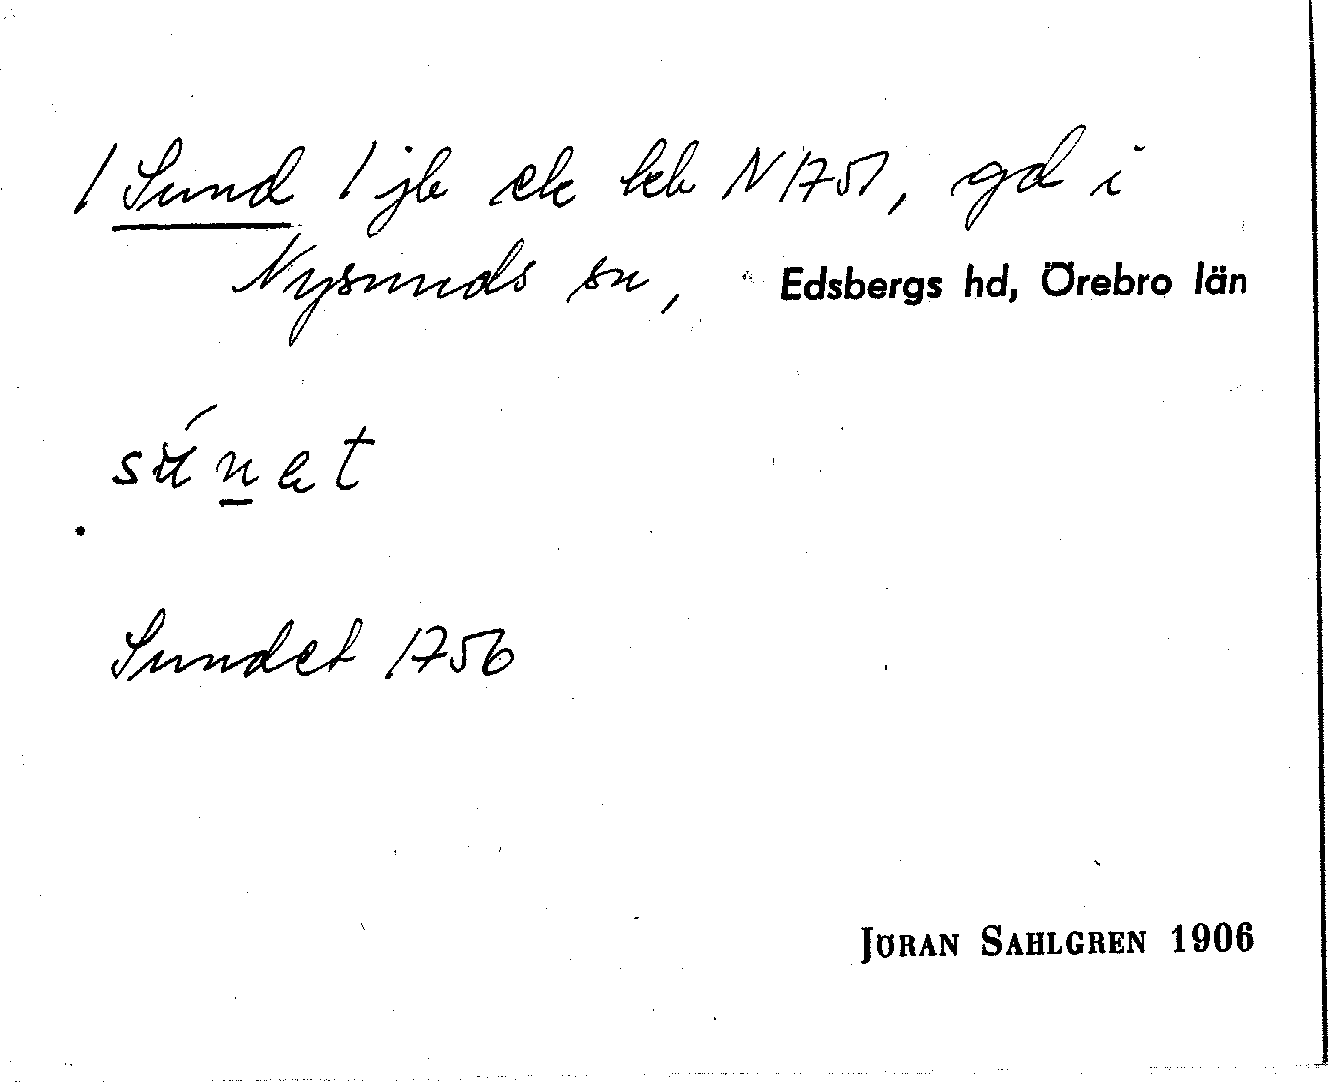 / Sund / jb ek kb N 1751, gd i
Nysunds sn, Edsbergs hd, Örebro län
su̇́n̲et
Sundet 1756
JÖRAN SAHLGREN 1906